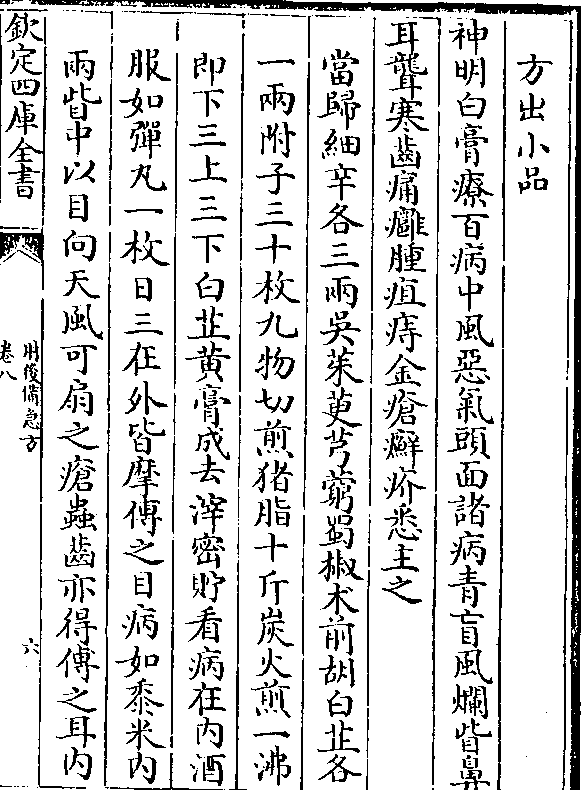 方出小品
神明白膏療百病中風惡氣頭面諸病青盲風爛眥鼻
耳聾寒齒痛癰腫疽痔金瘡癬疥悉主之
當歸細辛各三兩吳茱萸芎藭蜀椒术前胡白芷各
一兩附子三十枚九物切煎猪脂十斤炭火煎一沸
即下三上三下白芷黄膏成去滓密貯看病在内酒
服如彈丸一枚日三在外皆摩傅之目病如黍米内
兩眥中以目向天風可扇之瘡蟲齒亦得傅之耳内
欽定四庫全書
肘後備急方
卷八
六